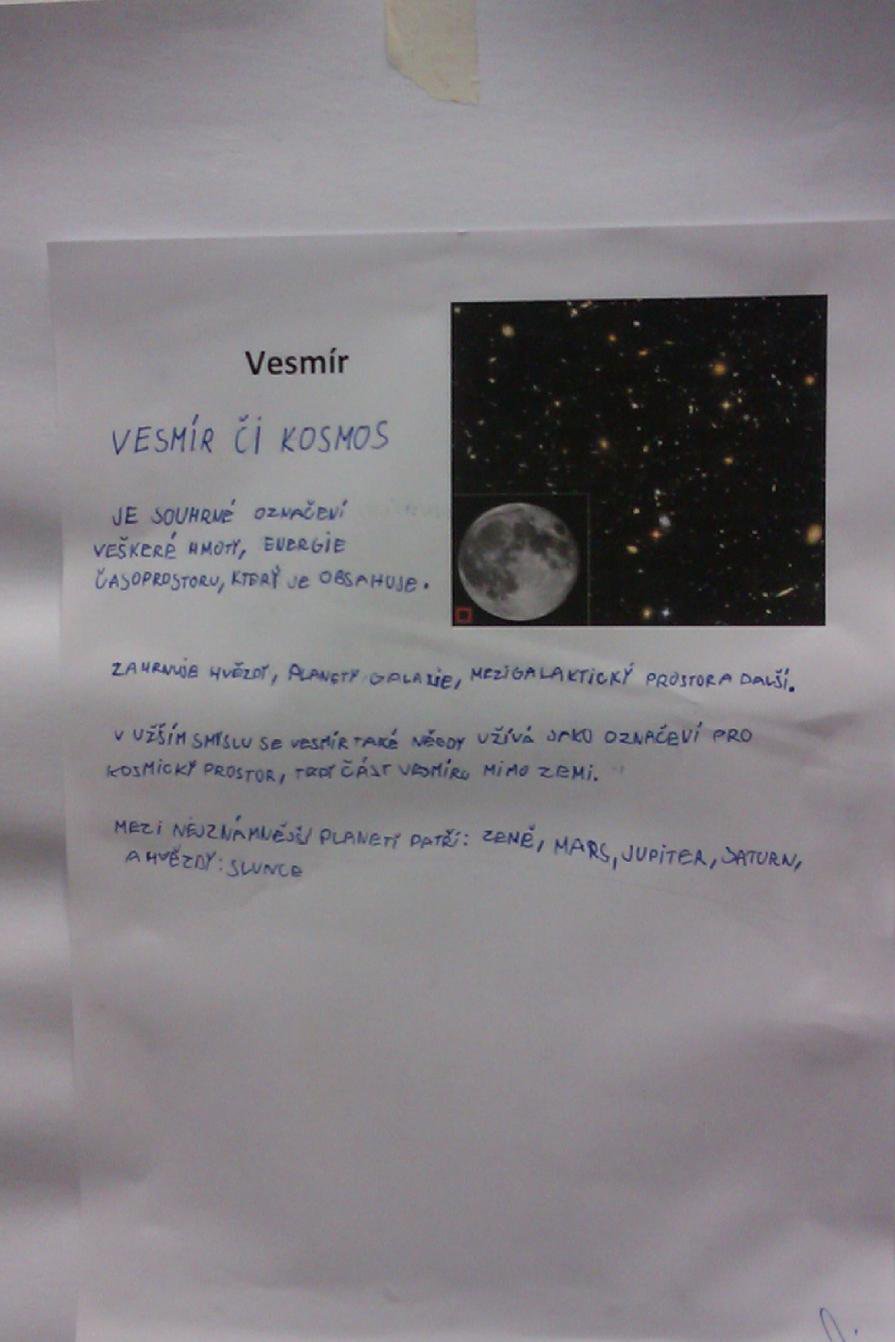 Vesmír
VESMÍR ČI KOSMOS
JE SOUHRNÉ OZNAČENÍ
VEŠKERÉ HMOTY, ENERGIE
ČASOPROSTORU, KTERÝ JE OBSAHUJE.
ZAHRNUJE HVĚZDY, PLANETY GALAXIE, MEZIGALAKTICKÝ PROSTOR A DALŠÍ.
V UŽŠÍM SMYSLU SE VESMÍR TAKÉ NĚKDY UŽÍVÁ JAKO OZNAČENÍ PRO
KOSMICKÝ PROSTOR, TEDY ČÁST VESMÍRU MIMO ZEMI.
MEZI NEJZNÁMNĚJŠÍ PLANETY PATŘÍ: ZEMĚ, MARS, JUPITER, SATURN,
A HVĚZDY: SLUNCE